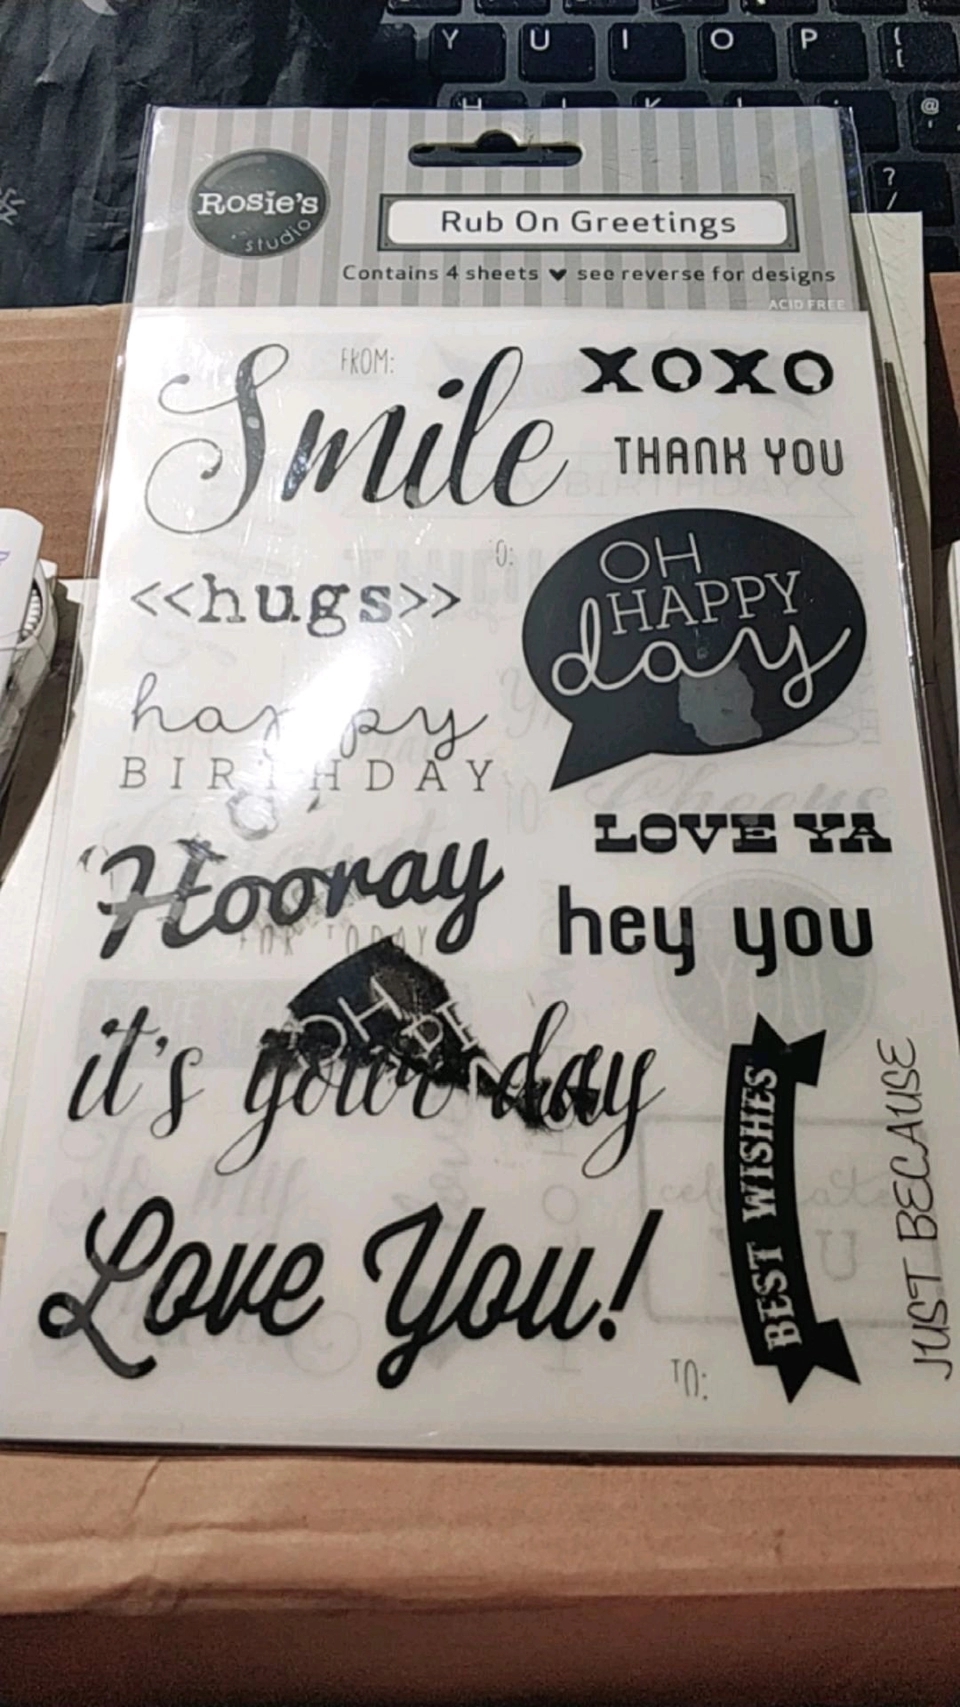 Y U I O P
Rosie's
studio
Rub On Greetings
Contains 4 sheets ♥ see reverse for designs
ACID FREE
FROM:
Smile
XOXO
THANK YOU
BIRTHDAY
<<hugs>>
OH
HAPPY
day
happy
BIRTHDAY
Cheers
LOVE YA
Hooray
hey you
FOR TODAY
OH
it's your day
BEST WISHES
JUST BECAUSE
Love You!
TO: